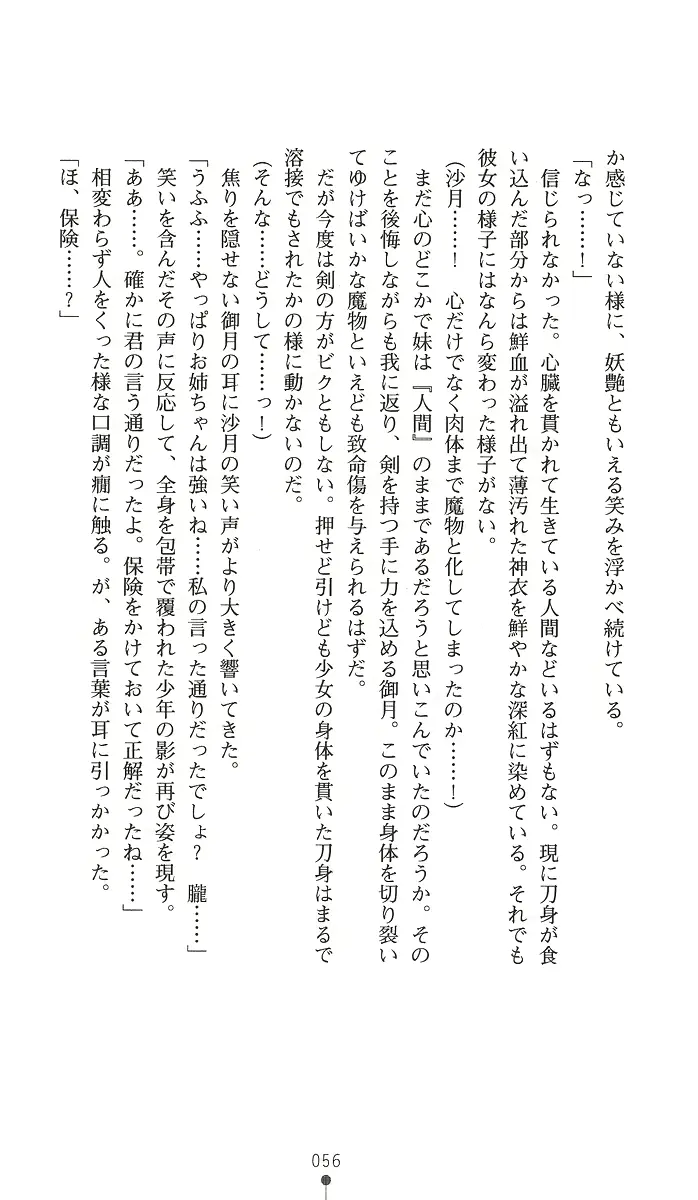 か感じていない様に、妖艶ともいえる笑みを浮かべ続けている。
「なっ……！」
　信じられなかった。心臓を貫かれて生きている人間などいるはずもない。現に刀身が食
い込んだ部分からは鮮血が溢れ出て薄汚れた神衣を鮮やかな深紅に染めている。それでも
彼女の様子にはなんら変わった様子がない。
（沙月……！　心だけでなく肉体まで魔物と化してしまったのか……！）
　まだ心のどこかで妹は『人間』のままであるだろうと思いこんでいたのだろうか。その
ことを後悔しながらも我に返り、剣を持つ手に力を込める御月。このまま身体を切り裂い
てゆけばいかな魔物といえども致命傷を与えられるはずだ。
　だが今度は剣の方がビクともしない。押せど引けども少女の身体を貫いた刀身はまるで
溶接でもされたかの様に動かないのだ。
（そんな……どうして……っ！）
　焦りを隠せない御月の耳に沙月の笑い声がより大きく響いてきた。
「うふふ……やっぱりお姉ちゃんは強いね……私の言った通りだったでしょ？　朧……」
　笑いを含んだその声に反応して、全身を包帯で覆われた少年の影が再び姿を現す。
「ああ……。確かに君の言う通りだったよ。保険をかけておいて正解だったね……」
　相変わらず人をくった様な口調が癇に触る。が、ある言葉が耳に引っかかった。
「ほ、保険……？」
056